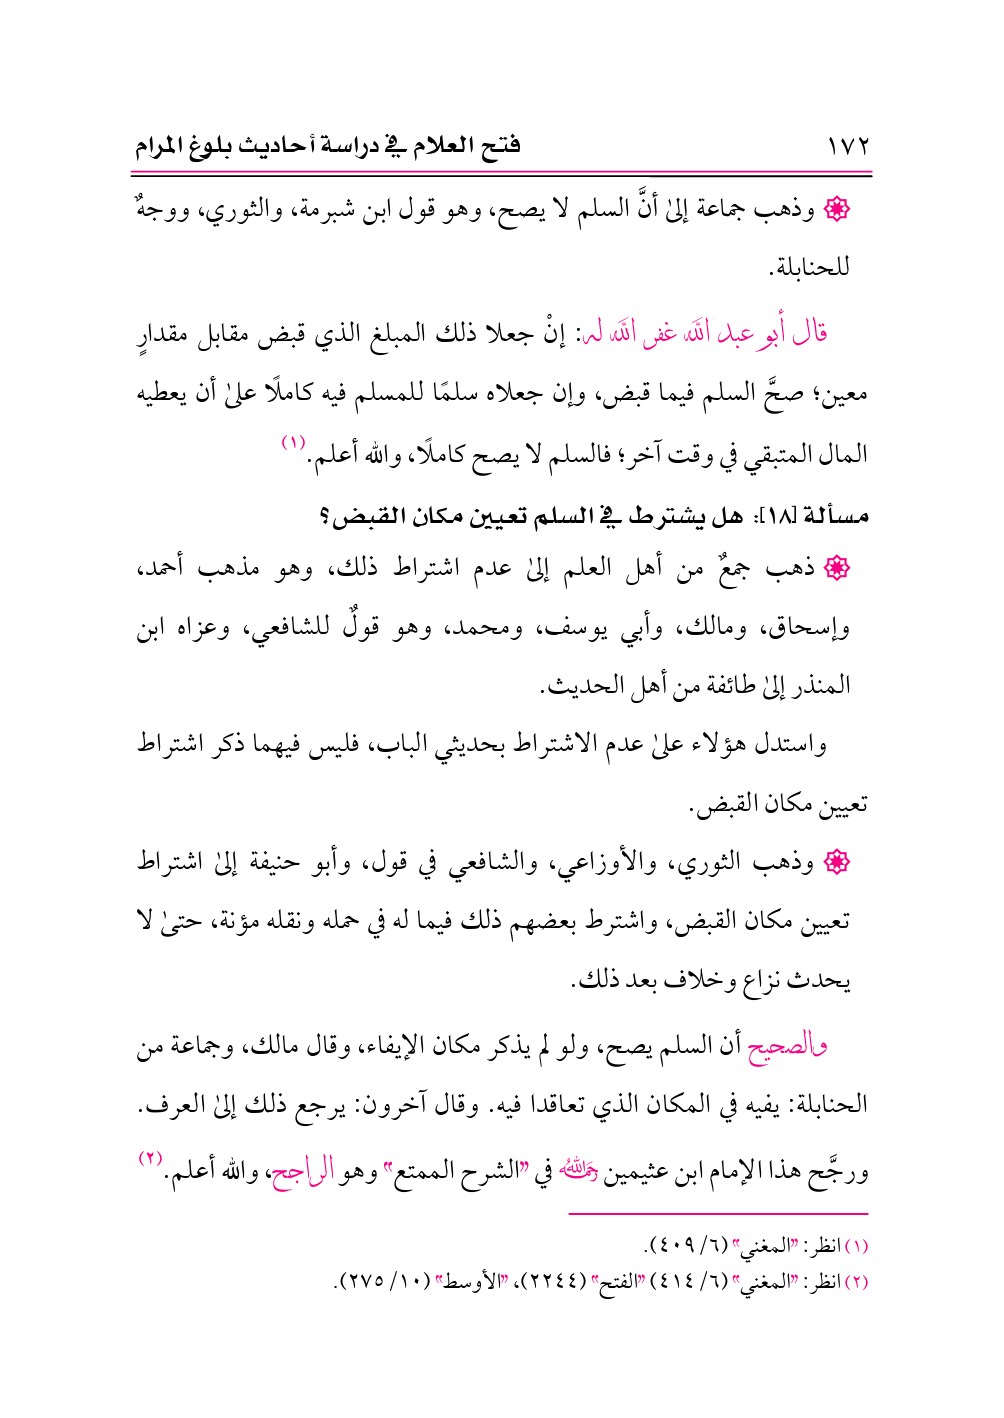 ١٧٢ فتح العلام في دراسة أحاديث بلوغ المرام
وذهب جماعة إلىٰ أنَّ السلم لا يصح، وهو قول ابن شبرمة، والثوري، ووجهٌ
للحنابلة.
قال أبو عبد الله غفر الله له: إنْ جعلا ذلك المبلغ الذي قبض مقابل مقدارٍ
معين؛ صحَّ السلم فيما قبض، وإن جعلاه سلمًا للمسلم فيه كاملًا علىٰ أن يعطيه
المال المتبقي في وقت آخر؛ فالسلم لا يصح كاملًا، والله أعلم.(١)
مسألة [١٨]: هل يشترط في السلم تعيين مكان القبض؟
ذهب جمعٌ من أهل العلم إلىٰ عدم اشتراط ذلك، وهو مذهب أحمد،
وإسحاق، ومالك، وأبي يوسف، ومحمد، وهو قولٌ للشافعي، وعزاه ابن
المنذر إلىٰ طائفة من أهل الحديث.
واستدل هؤلاء علىٰ عدم الاشتراط بحديثي الباب، فليس فيهما ذكر اشتراط
تعيين مكان القبض.
وذهب الثوري، والأوزاعي، والشافعي في قول، وأبو حنيفة إلىٰ اشتراط
تعيين مكان القبض، واشترط بعضهم ذلك فيما له في حمله ونقله مؤنة، حتىٰ لا
يحدث نزاع وخلاف بعد ذلك.
والصحيح أن السلم يصح، ولو لم يذكر مكان الإيفاء، وقال مالك، وجماعة من
الحنابلة: يفيه في المكان الذي تعاقدا فيه. وقال آخرون: يرجع ذلك إلىٰ العرف.
ورجَّح هذا الإمام ابن عثيمين رحمه الله في "الشرح الممتع" وهو الراجح، والله أعلم.(٢)
(١) انظر: "المغني" (٦/ ٤٠٩).
(٢) انظر: "المغني" (٦/ ٤١٤) "الفتح" (٢٢٤٤)، "الأوسط" (١٠/ ٢٧٥).